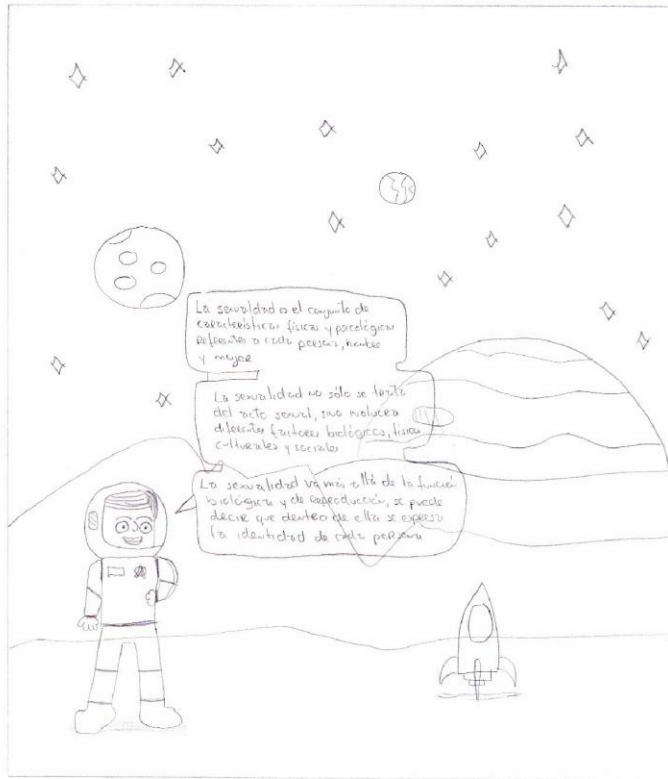 La sexualidad es el conjunto de
características físicas y psicológicas
referentes a cada persona, hombre
y mujer
La sexualidad no sólo se trata
del acto sexual, sino involucra
diferentes factores biológicos, físicos
culturales y sociales
La sexualidad va más allá de la función
biológica y de Reproducción, se puede
decir que dentro de ella se expresa
la identidad de cada persona